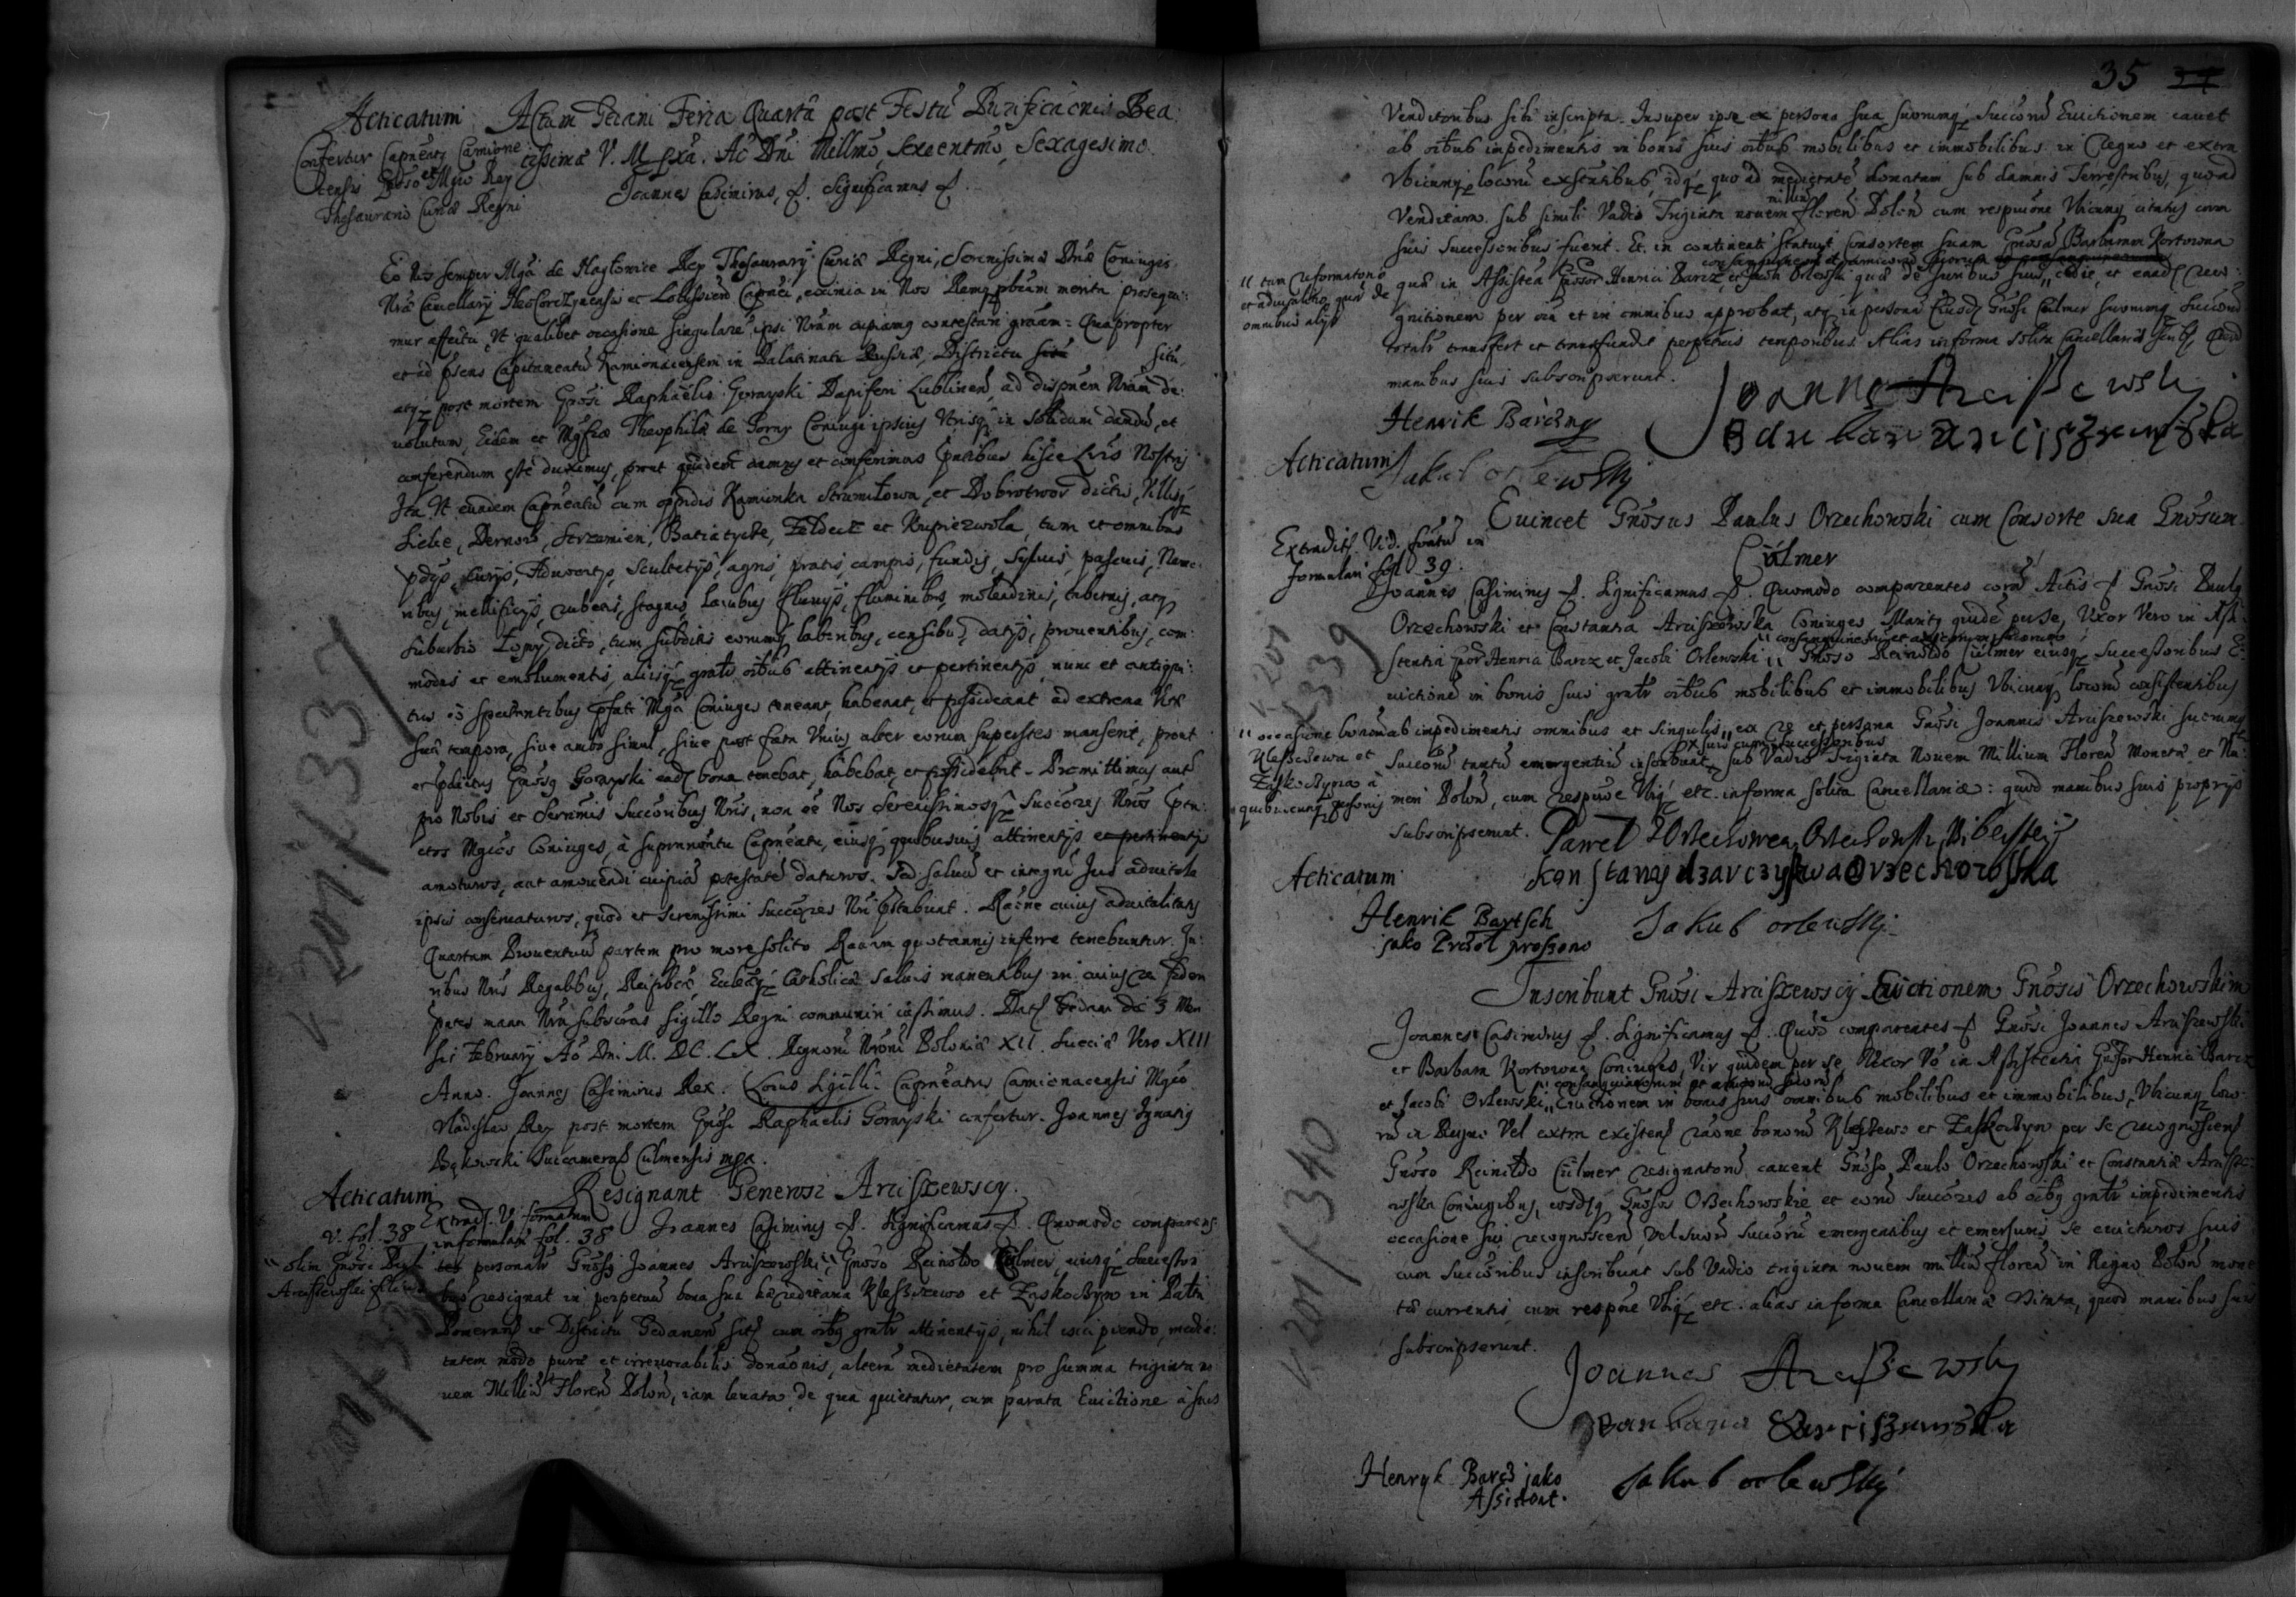 Acticatum Actum Gedani Feria Quarta post Festũ Purificãcnis Bea:
Confertur Capneatq Camione tissimæ V. M. Ao Dni Millmo, Sexcentmo, Sexagesimo.
censis Gnoso et Mgco Rey
Thesaurario Curiæ Regni
Joannes Casimirus, Significamus
Eo Nos semper Mga de Nagłowice Rey Thesaurarij Curiæ Regni, Serenissimæ Dnæ Coniugis
Nræ Cancellarij et eximia in Nos Remq pbcam merita prosequi:
mur affectu, Ut qualibet occasione singularẽ ipsi Nram cupiamq contestari grãam: Quapropter
et ad psens Capitaneatũ Kamionacensem in Palatinatu Russiæ, Districtu situ,
atq post mortem Gnosi Raphaëlis Gorayski Dapiferi Lublinen, ad dispnem Nram de:
uolutum, Eidem et Mgfcæ Theophilæ de Coniugi ipsius Utrisq in solidum dandũ, et
conferendum esse duximus, prout quidem damus et conferimus pntibus hisce Lris Nostris
Ita Ut eundem Capneatũ cum oppidis Kamionka Strumiłowa, et Dobrotwor dictis, Villisq
Sielce, Dernow, Strzemien, Batiatycze, Żeldecz et Kupiczwola, tum et omnibus
pdijs, Curijs, Aduocatijs, Scultetijs, agris, pratis, campis, fundis, Syluis, pascuis, Nemo:
ribus, mellificijs, rubetis, stagnis, lacubus fluuijs, fluminibus, molendinis, tabernis, atq
suburbio dicto, tum subditis eorumq laboribus, censibus, datijs, prouentibus, com:
modis et emolumentis, alijsq gratr oibus attinentijs et pertinentijs, nunc et antiqui:
tus eò spectantibus pfati Mgci Coniuges teneant, habeant, et possideant ad extrema Vitæ
suæ tempora, siue ambo simul, siue post fata Unius, alter eorum superstes manserit, prout
et pdictus Gnosq Gorayski eadẽ bona tenebat, habebat, et possidebat. Promittimus autẽ
pro Nobis et Sereni̇mis Succoribus Nris, non ee Nos Serenissimosq Succores Nros
Mgcos Coniuges, à supranõtu Capneatu, eiusq quibusuis attinentijs et pertinentijs
amoturos, aut amouendi cuipiã potestatẽ daturos. Sed saluũ et integrũ Jus aduitale
ipsis conseruaturos, quod et Serenissimi Succores Nri pstabunt. Racne cuius aduitalitatis
Quartam Prouentuũ partem pro more solito Rauam quotannis inferre tenebuntur. Ju:
ribus Nris Regalibus, Reipbcæ, Eccleæq Catholicæ saluis manentibus in cuius rei fidem
pntes manu Nra subscras sigillo Regni communiri iussimus. Dat Gedani die 3 Men
sis February Aõ Dni M. DC. LX. Regnorũ Nrorũ Poloniæ XII. Sueciæ Vero XIII
Anno. Joannes Casimirus Rex. Locus Sigilli. Capneatus Camionacensis Mgco
Vladislao Rey post mortem Gnosi Raphaelis Gorayski confertur. Joannes Ignatiq
Bąkowski Succamerag Culmensis mpa.
Acticatum Resignant Generosi Arciszewscy.
V. fol. 38 Extrad. V. formatum in formulari fol. 38
Joannes Casimirus Significamus Quomodo comparens
olim Gnosi
Arciszewski filius
personalr Gnosq Joannes Arciszewski, Gnoso Reinoldo Cülmer, eiusq Successori
bus resignat in perpetuũ bona sua hæreditaria Kleszczewo et Zaskoczyn in Pattu
Pomeran et Districtu Gedanen sita cum oibq gratr attinentijs, nihil excipiendo, medie:
tatem modo puræ et irreuocabilis donãonis, alterã medietatem pro summa triginta no
uem Milliũ Floren Polon, iam leuata, de qua quietatur, cum parata Euictione à suis
K 201/f 337
201/f 338
35
Venditoribus sibi inscripta. Insuper ipse ex persona sua suorumq Succorũ Euictionem cauet
ab oibus impedimentis in bonis suis oibus mobilibus et immobilibus in Regno et extra
Ubicunq locorũ existentibus, idq quoad medietatẽ donatam sub damnis terrestribus, quoad
Venditam sub simili Vadio Triginta nouem milliũ floren Polon cum respnione Ubicunq citatus cum
suis successoribus fuerit. Et in continenti statuit Consortem suam Gnosã Barbaram Kortowna
quæ in Assistẽa Gnosor Henrici Barcz et Jacobi Orlewski quæ de Juribus suis cedit et eandẽ reco:
gnitionem per oia et in omnibus approbat, atq in persona Eiusd Gnosi Cülmer suorumq Succorũ
totalr transfert et transfundit perpetuis temporibus. Alias in forma solita Cancellariæ
manibus suis subscripserunt.
tum reformatono
et aduitalitio quã de
omnibus alijs
Joannes Arciszewsky
Barbara Arciszewska
Henrik Barczy
Jakub orlewsky
Acticatum
Euincet Gnosus Paulus Orzechowski cum Consorte sua Gnosum
Cülmer
Extradit. Vid. foratũ in
formulari fol. 39.
Joannes Casimirus Significamus Quomodo comparentes corã Actis Gnosi Paulq
Orzechowski et Constantia Arciszewska Coniuges Maritq quidẽ per se, Uxor Vero in Assi
stentia Gnor Henrici Barcz et Jacobi Orlewski consanguineorũ et amicorum suorum Gnoso Reinoldo Cülmer eiusq Successoribus E:
uictionẽ in bonis suis gratr oibus mobilibus et immobilibus Ubicunq locorũ consistentibus
ab impedimentis omnibus et singulis ex re et persona Gnosi Joannis Arciszewski suorumq
Succorũ tantũ emergentiũ inscribunt, Sub Vadio Triginta Nouem Millium Floren Monetæ et Nu:
meri Polon, cum respnione Ubiq etc. in forma solita Cancellariæ: quod manibus suis proprijs
subscripserunt.
occasione bonorũ
Kleszczewa et
Zaskoczyna à
quibuscunq personis
Paweł
Konstancyja z Arczyszewa Orzechowska
Acticatum
Henrik Bartsch
jako
Jakub orlewsky
Inscribunt Gnosi Arciszewscy Euictionem Gnosis Orzechowskim
Joannes Casimirus Significamus Quod comparentes Gnosi Joannes Arciszewski
et Barbara Kortowna Coniuges, Vir quidem per se, Uxor Vo in Assistentia Gnosor Henrici Barcz
et Jacobi Orlewski consanguineorum et amicorũ suorũ Euictionem in bonis suis omnibus mobilibus et immobilibus, Ubicunq loco:
rũ in Regno Vel extra existen racne bonorũ Kleszczewo et Zaskoczyn per se recognoscen
Gnoso Reinoldo Cülmer resignatorũ, cauent Gnoso Paulo Orzechowski et Constantiæ Arcisze:
wska Coniugibus, eosdq Gnosos Orzechowskie et eorũ succores ab oibq gratr impedimentis
occasione sui recognoscen, Vel suorũ Succorũ emergentibus et emersuris se euicturos suis
cum Succoribus inscribunt sub Vadio triginta nouem milliũ floren in Regno Polon mone
tæ currentis, cum respne Ubiq etc. alias in forma Cancellariæ Usitata, quod manibus suis
subscripserunt.
Joannes Arciszewsky
Barbara Arciszewska
Henryk Barcz jako
Assistent.
Jakub orlewsky
K 201 f 339
K 201/f 340